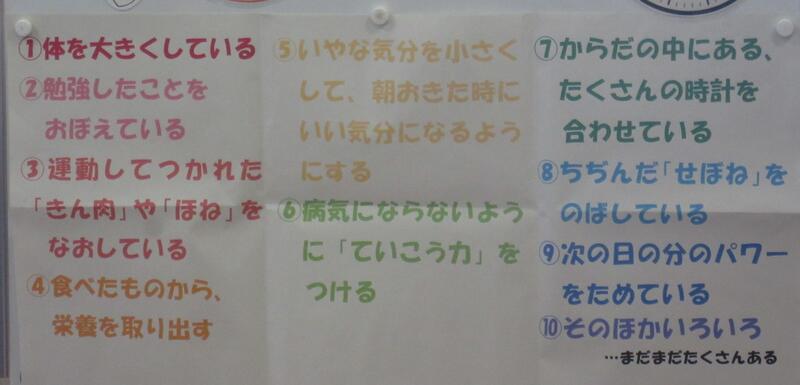 ①体を大きくしている
②勉強したことを
おぼえている
③運動してつかれた
「きん肉」や「ほね」を
なおしている
④食べたものから、
栄養を取り出す
⑤いやな気分を小さく
して、朝おきた時に
いい気分になるよう
にする
⑥病気にならないよう
に「ていこう力」を
つける
⑦からだの中にある、
たくさんの時計を
合わせている
⑧ちぢんだ「せぼね」を
のばしている
⑨次の日の分のパワー
をためている
⑩そのほかいろいろ
…まだまだたくさんある